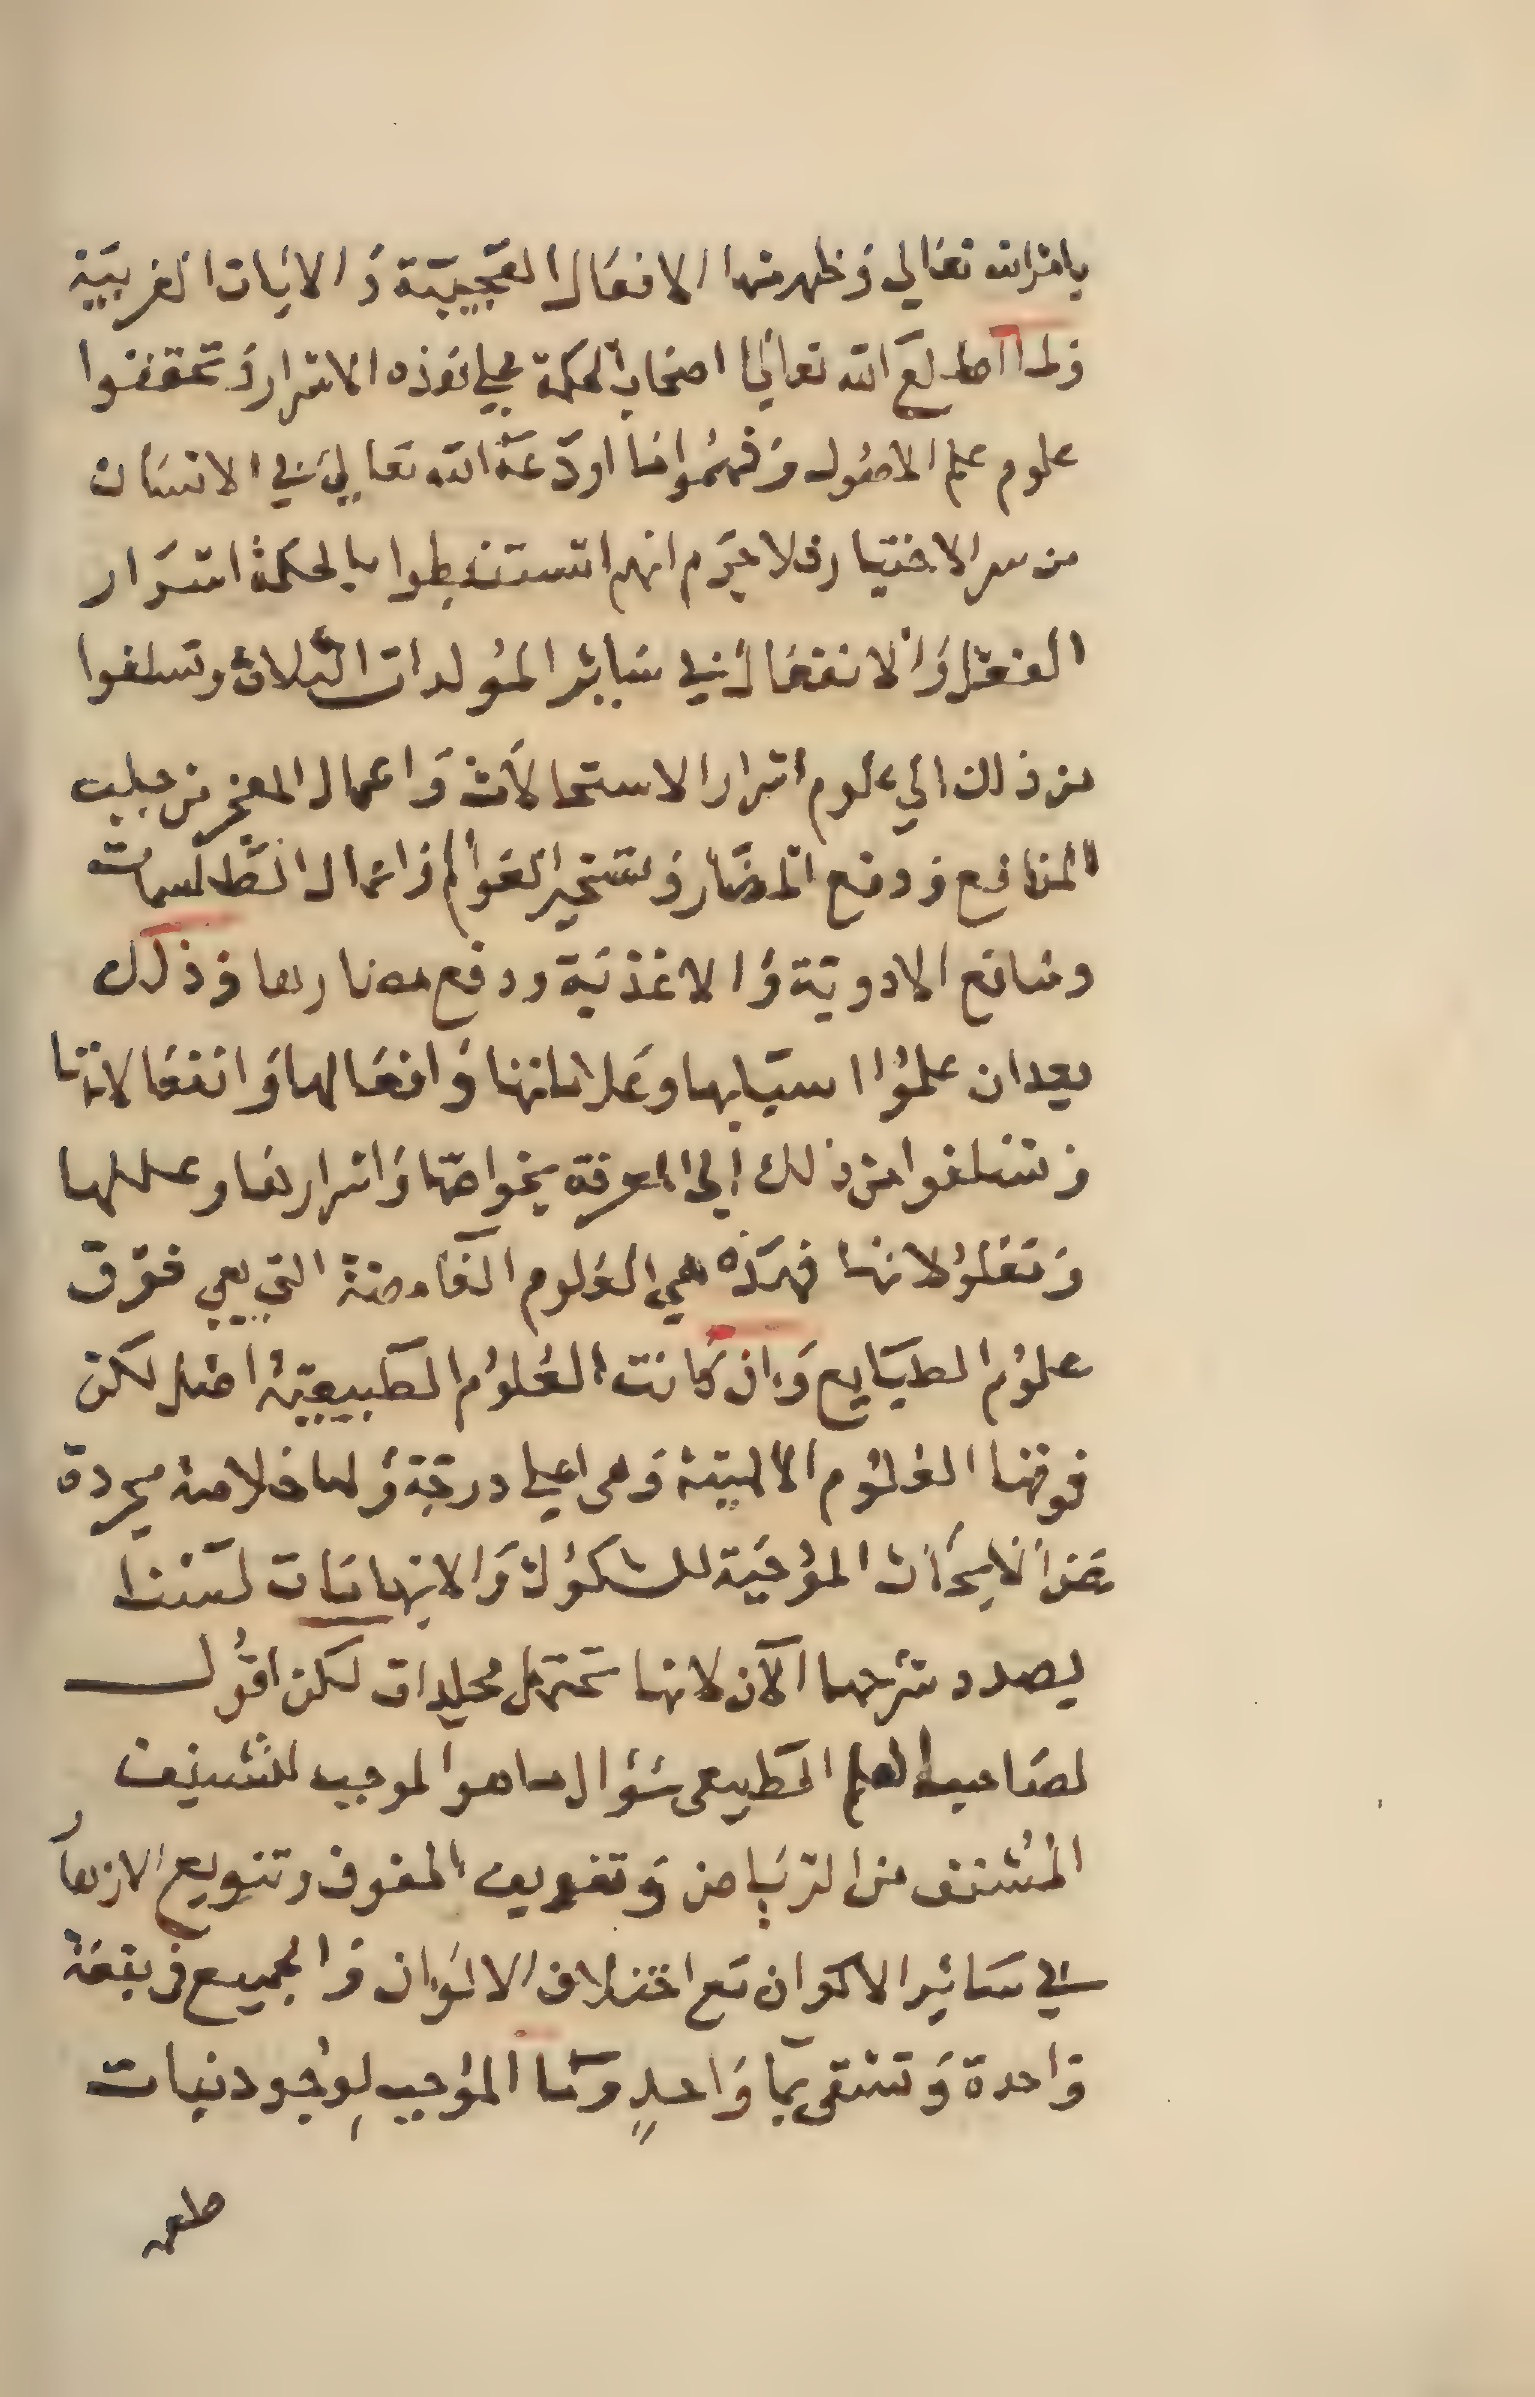 بامر الله تعالى وظهر منها الافعال العجيبة والايات الغريبة
ولما اطلع الله تعالى اصحاب الحكمة على هذه الاسرار وتحققوا
علوم علم الاصول وفهموا ما اودعه الله تعالى في الانسان
من سر الاختيار فلا جرم انهم استنبطوا بالحكمة اسرار
الفعل والانفعال في سائر المولدات الثلاث وتسلقوا
من ذلك الي علوم اسرار الاستحالات واعمال المعجز من جلب
المنافع ودفع المضار وتسخير العوالم واعمال الطلسمات
ومنافع الادوية والاغذية ودفع مضارها وذلك
بعد ان علموا اسبابها وعلاماتها وافعالها وانفعالاتها
وتسلقوا من ذلك الي المعرفة بخواصها واسرارها وعللها
ومعلولاتها فهذه هي العلوم الغامضة التي هي فوق
علوم الطبايع وان كانت العلوم الطبيعية اصل لكن
فوقها العلوم الالهية وهي اعلي درجة ولها خلاصة مجردة
عن الابحاث الموجبة للشكوك والابهامات لسنا
بصدد شرحها الآن لانها تحتمل مجلدات لكن اقول
لصاحب العلم الطبيعي سؤال ما هو الموجب لتشنيف
المشنف من الرياض وتفويف المفوف وتنويع الازهار
في سائر الاكوان مع اختلاف الالوان والجميع في بقعة
واحدة وتسقى بماء واحدٍ وما الموجب لوجود نبات
طعمه